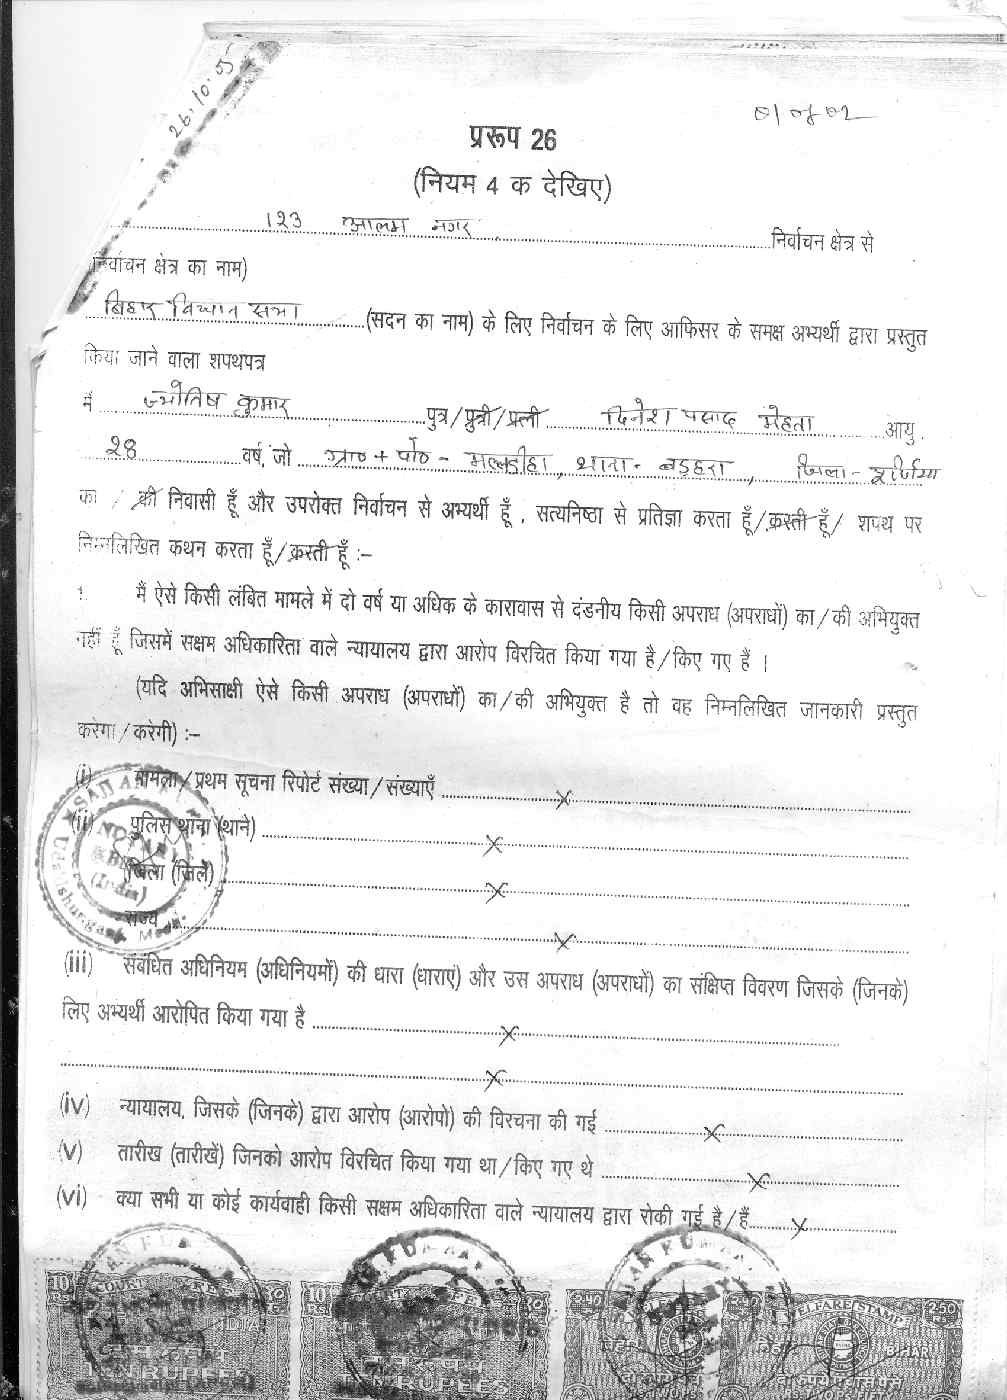 26.10.05
प्ररूप 26
(नियम 4 क देखिए)
123 आलम नगर निर्वाचन क्षेत्र से
निर्वाचन क्षेत्र का नाम)
बिहार विधान सभा (सदन का नाम) के लिए निर्वाचन के लिए आफिसर के समक्ष अभ्यर्थी द्वारा प्रस्तुत
किया जाने वाला शपथपत्र
मैं ज्योतिष कुमार पुत्र/पुत्री/पत्नी दिनेश प्रसाद मेहता आयु
28 वर्ष, जो ग्रा० + पो० - मल्डीहा, थाना - बड़हरा, जिला - पूर्णिया
का / की निवासी हूँ और उपरोक्त निर्वाचन से अभ्यर्थी हूँ , सत्यनिष्ठा से प्रतिज्ञा करता हूँ/करती हूँ/ शपथ पर
निम्नलिखित कथन करता हूँ/करती हूँ :–
1. मैं ऐसे किसी लंबित मामले में दो वर्ष या अधिक के कारावास से दंडनीय किसी अपराध (अपराधों) का/की अभियुक्त
नहीं हूँ जिसमें सक्षम अधिकारिता वाले न्यायालय द्वारा आरोप विरचित किया गया है/किए गए हैं ।
(यदि अभिसाक्षी ऐसे किसी अपराध (अपराधों) का/की अभियुक्त है तो वह निम्नलिखित जानकारी प्रस्तुत
करेगा/करेगी) :–
(i) मामला/प्रथम सूचना रिपोर्ट संख्या/संख्याएँ X
(ii) पुलिस थाना (थाने) X
जिला (जिले) X
राज्य X
(iii) संबंधित अधिनियम (अधिनियमों) की धारा (धाराएं) और उस अपराध (अपराधों) का संक्षिप्त विवरण जिसके (जिनके)
लिए अभ्यर्थी आरोपित किया गया है X
X
(iv) न्यायालय, जिसके (जिनके) द्वारा आरोप (आरोपो) की विरचना की गई X
(v) तारीख (तारीखें) जिनको आरोप विरचित किया गया था/किए गए थे X
(vi) क्या सभी या कोई कार्यवाही किसी सक्षम अधिकारिता वाले न्यायालय द्वारा रोकी गई है/हैं X
NOTARY
(India)
10 COURT FEE
INDIA
RUPEES
10 RS.
RUPEES
2.50
WELFARE STAMP 2.50
BIHAR